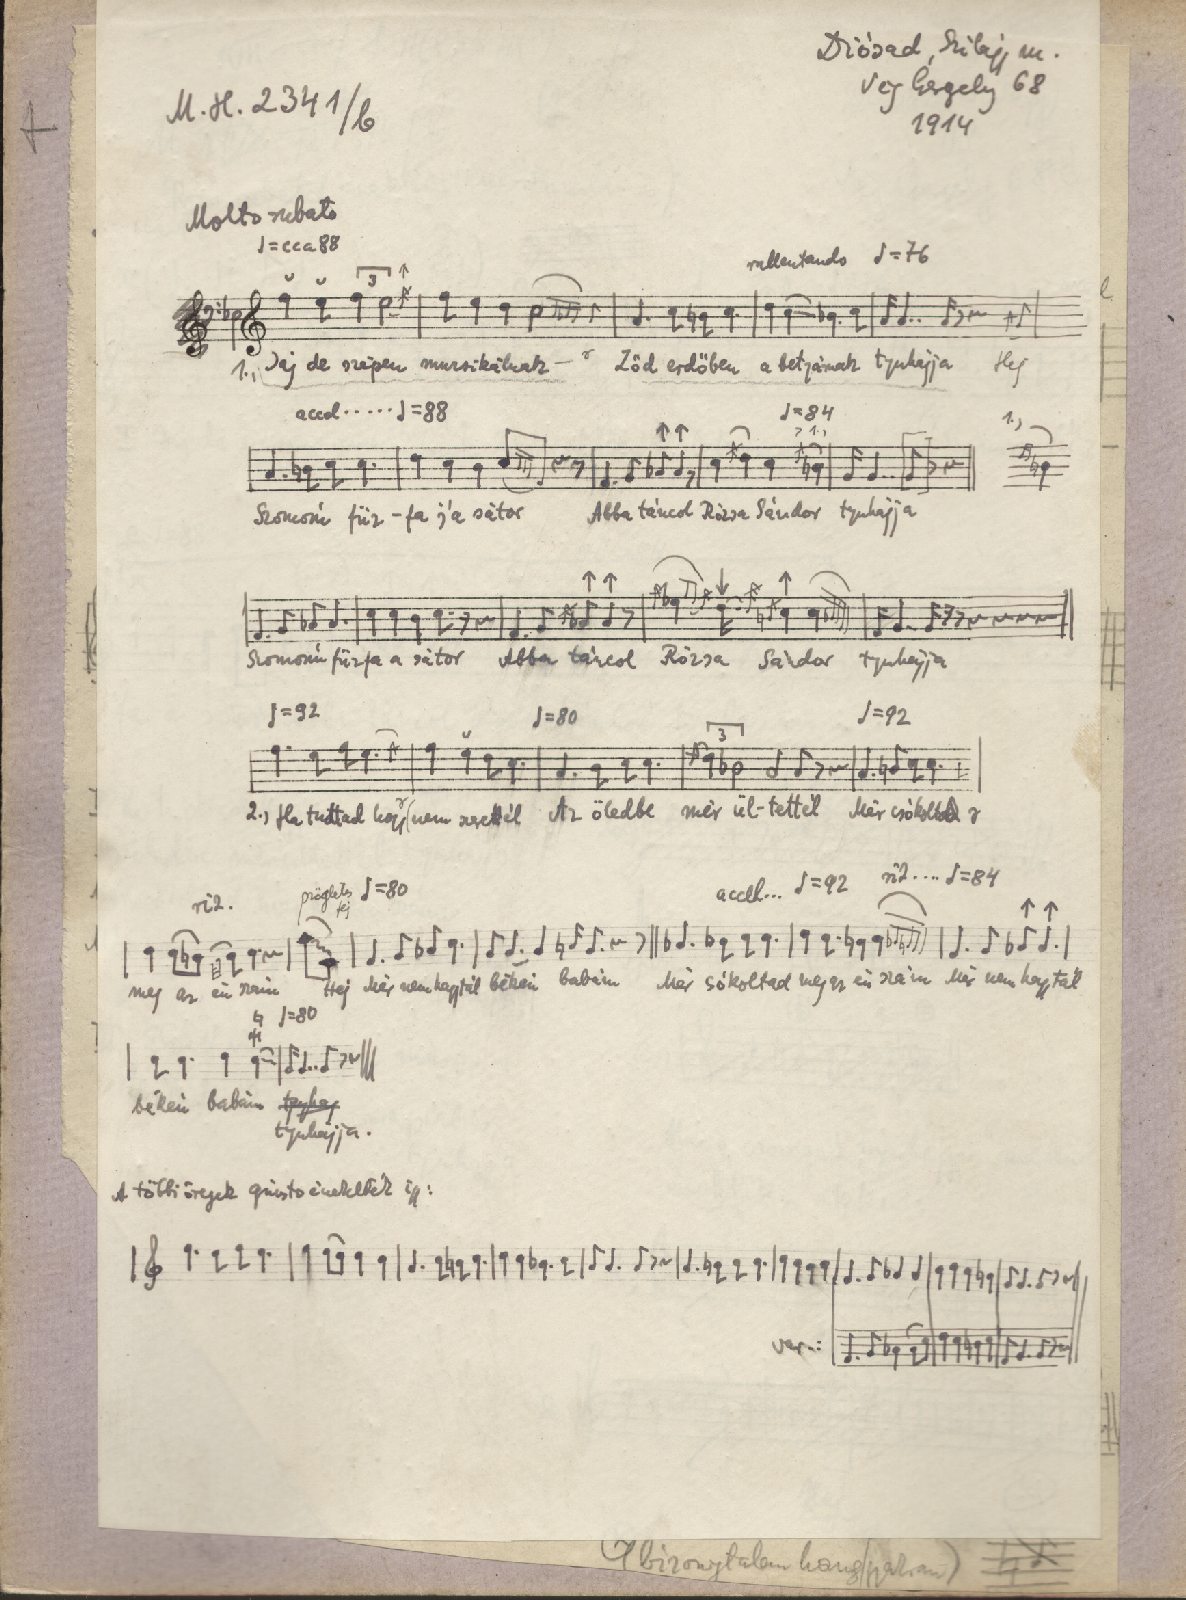 Diósad, Szilágy m.
Vég Gergely 68
1914
M.H. 2341/b
Molto rubato
♩=cca 88
rallentando ♩=76
3
1., Jaj de szépen muzsikálnak – Zöd erdőben a betyárnak tyuhajja Hej
accel...... ♩=88
♩=84
1.,
1.,
Szomorú fűz-fa j'a sátor Abba táncol Rózsa Sándor tyuhajja
Szomorú fűzfa a sátor Abba táncol Rózsa Sándor tyuhajja
♩=92 ♩=80 ♩=92
3
2.) Ha tudtad hogy nem szerettél Az öledbe mér ül-tettél Mér csókoltad
rit. ♩=80
accell... ♩=92 rit.... ♩=84
meg az én szám Hej Mér nem hagytál békén babám Mér csókoltad meg az én szám Mér nem hagytál
♩=80
békén babám tyuhaj
tyuhajja.
A többi öregek giusto énekelték így:
var.:
(bizonytalan hang